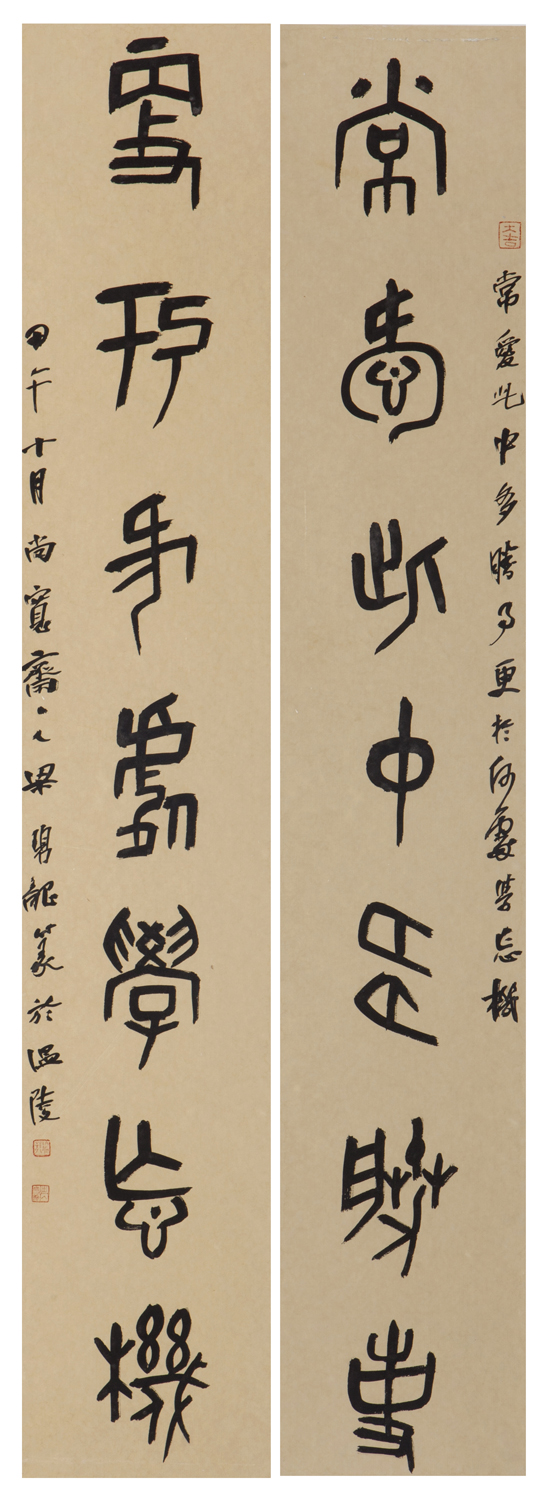 大吉
常愛此中多勝事更於何處學忘機
常愛此中多勝事
更於何處學忘機
甲午十月尚寬齋主人梁碧龍篆於温陵